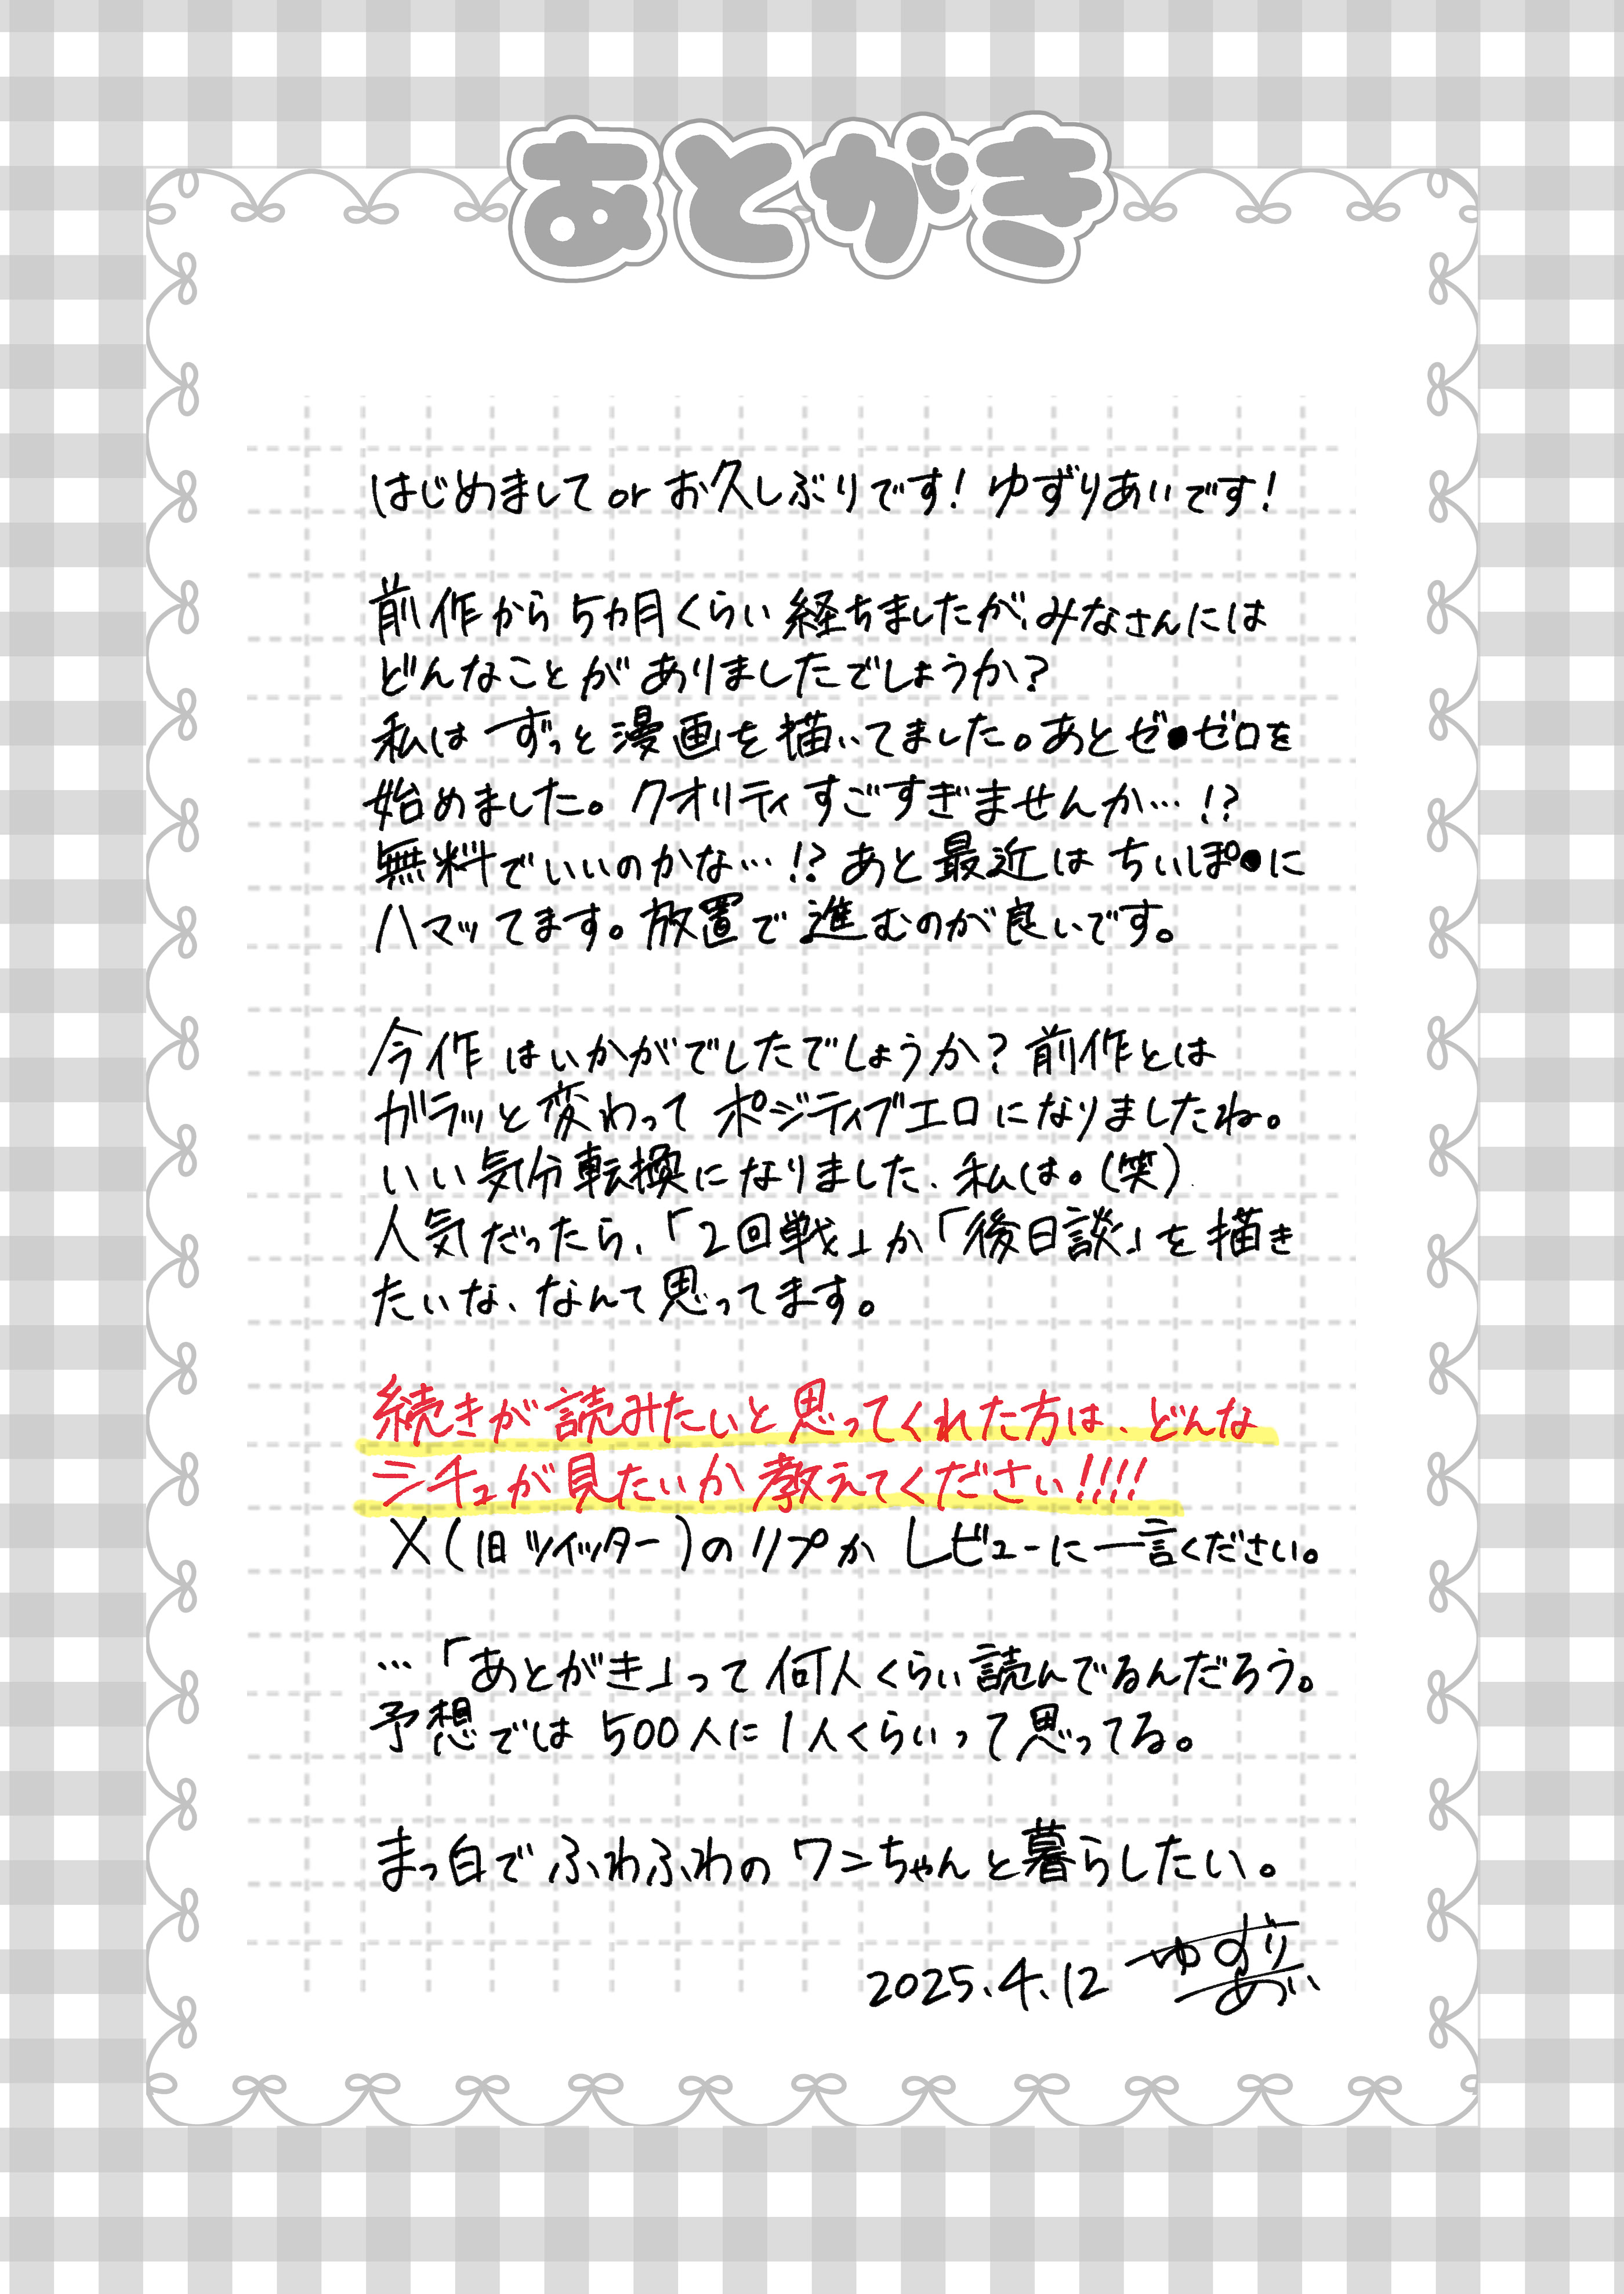 あとがき
はじめまして or お久しぶりです！ ゆずりあいです！
前作から5ヵ月くらい経ちましたが、みなさんには
どんなことがありましたでしょうか？
私はずっと漫画を描いてました。あとゼ●ゼロを
始めました。クオリティすごすぎませんか…！？
無料でいいのかな…！？あと最近はちぃぽ●に
ハマッてます。放置で進むのが良いです。
今作はいかがでしたでしょうか？前作とは
ガラッと変わってポジティブエロになりましたね。
いい気分転換になりました、私は。（笑）
人気だったら、「2回戦」か「後日談」を描き
たいな、なんて思ってます。
続きが読みたいと思ってくれた方は、どんな
シチュが見たいか教えてください！！！！
X（旧ツイッター）のリプかレビューに一言ください。
…「あとがき」って何人くらい読んでるんだろう。
予想では500人に1人くらいって思ってる。
まっ白でふわふわのワンちゃんと暮らしたい。
2025.4.12 ゆずりあい